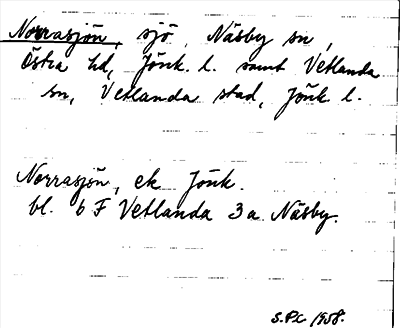 Norrasjön, sjö, Näsby sn,
Östra hd, Jönk. l. samt Vetlanda
sn, Vetlanda stad, Jönk l.
Norrasjön, ek Jönk.
bl. 6 F Vetlanda 3a Näsby.
1958.